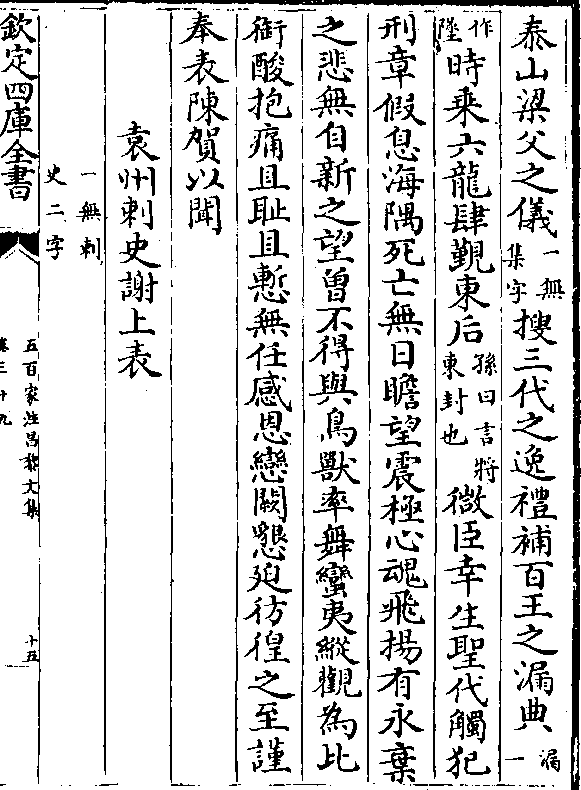 泰山梁父之儀一無集字搜三代之逸禮補百王之漏典漏一
作陸時乘六龍肆覲東后孫曰言將東封也微臣幸生聖代觸犯
刑章假息海隅死亡無日瞻望震極心魂飛揚有永棄
之悲無自新之望曾不得與鳥獸率舞蠻夷縱觀為比
銜酸抱痛且耻且慙無任感恩戀闕懇迫彷徨之至謹
奉表陳賀以聞
袁州刺史謝上表
一無刺史二字
欽定四庫全書
五百家注昌黎文集
卷三十九
十五